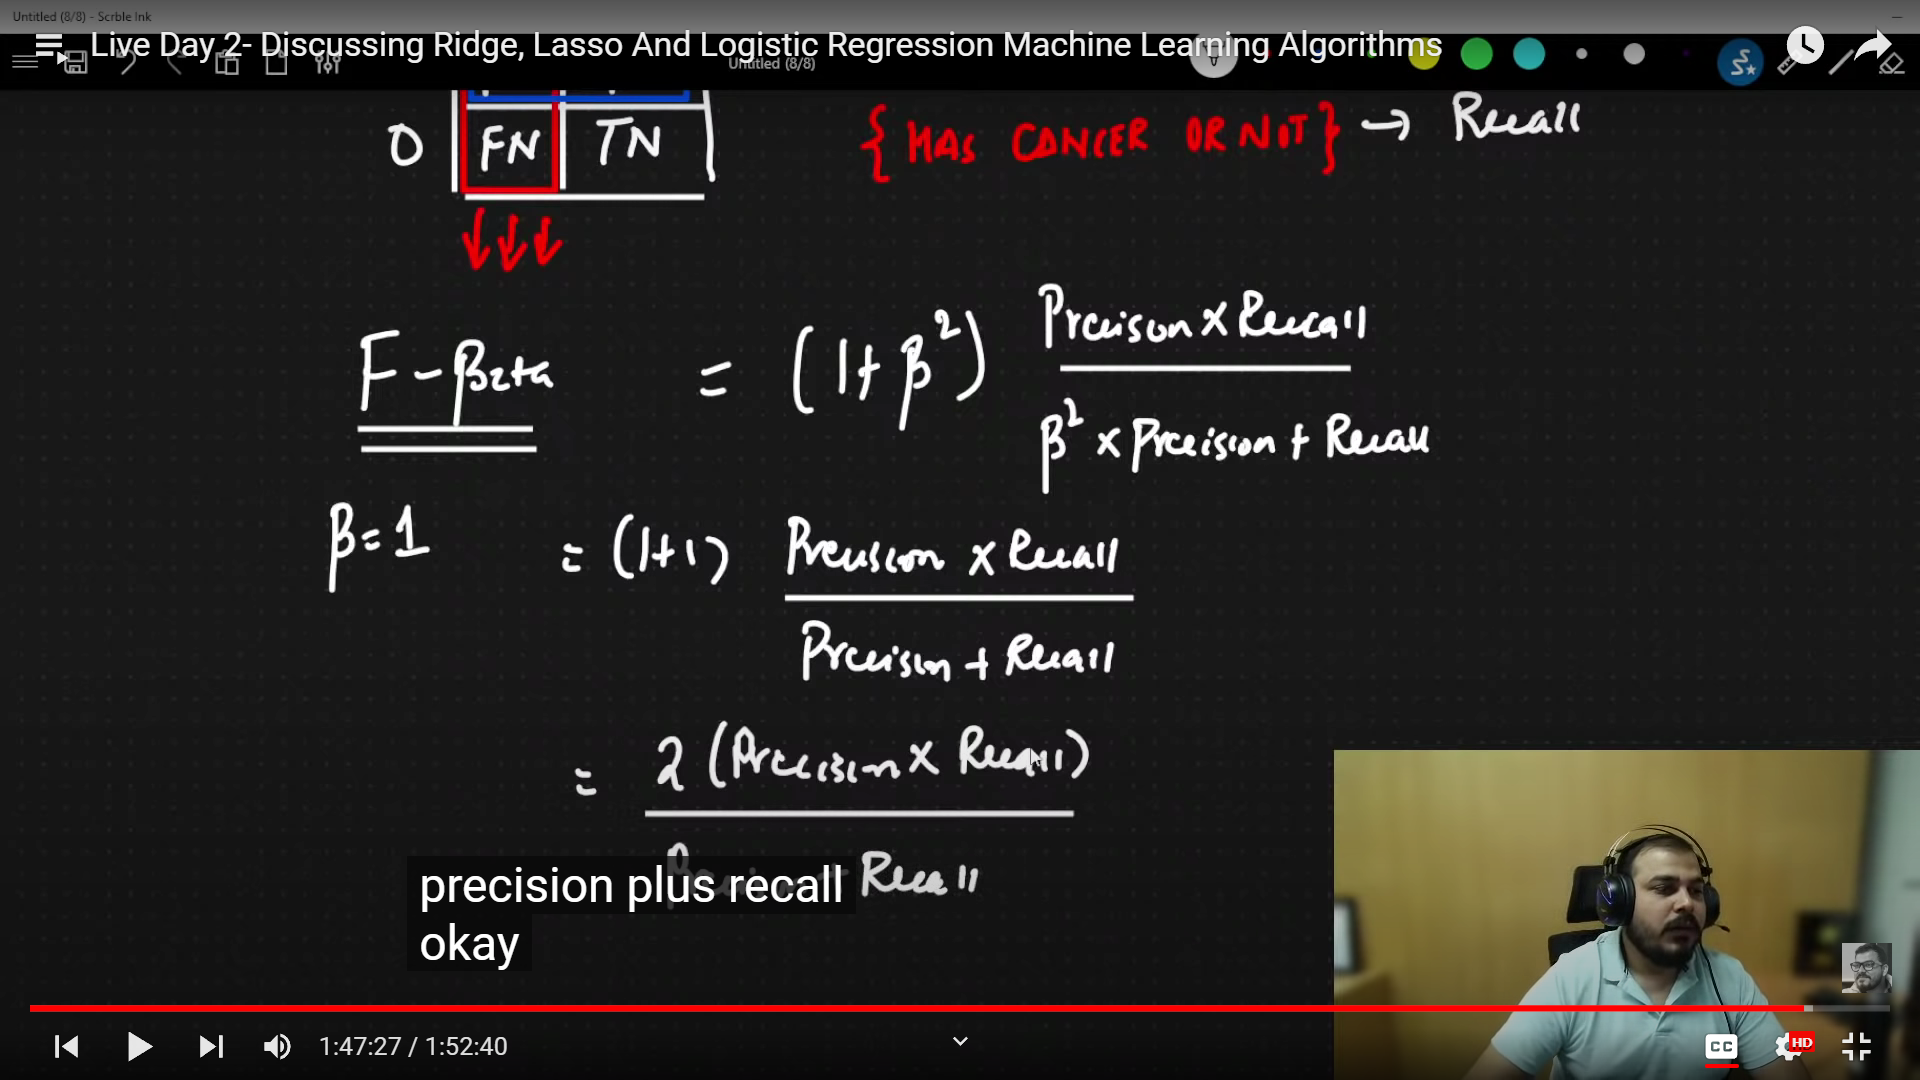 Untitled (8/8) - Scrble Ink
Live Day 2- Discussing Ridge, Lasso And Logistic Regression Machine Learning Algorithms
Untitled (8/8)
0 FN TN
{ HAS CANCER OR NOT } → Recall
F - Beta = (1 + β²) Precison x Recall
β² x Precision + Recall
β = 1 = (1+1) Precision x Recall
Precision + Recall
= 2 (Precision x Recall)
Recall
precision plus recall
okay
1:47:27 / 1:52:40
CC
HD